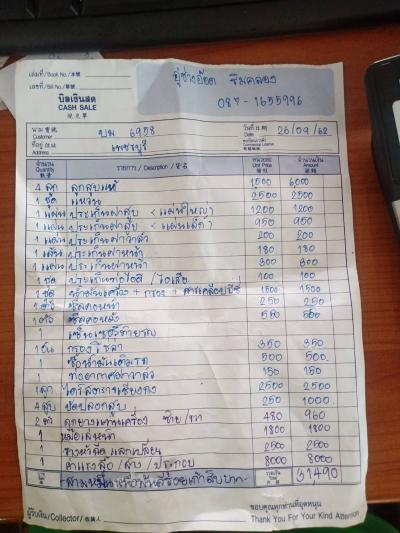 เล่มที่/Book No./本號
เลขที่/Bill No./單號
อู่ช่างอ๊อด ริมคลอง
087-1655996
บิลเงินสด
CASH SALE
現 光 單
นาม 寶號 Customer บม 6958
วันที่ Date 26/09/62
ที่อยู่ Address เพชรบุรี
จำนวน Quantity รายการ / Description หน่วยละ Unit Price จำนวนเงิน Amount
4 ลูก ลูกสูบแท้ 1500 6000
1 ชุด แหวน 2500 2500
1 แผ่น ประเก็นฝาสูบ <แผ่นใหญ่> 1200 1200
1 แผ่น ประเก็นฝาสูบ <แผ่นเล็ก> 950 950
1 แผ่น ประเก็นฝาวาล์ว 200 200
1 แผ่น ประเก็นฝาหน้า 180 180
1 แผ่น ประเก็นฝาหน้า 300 300
1 ชุด ประเก็นท่อไอดี/ไอเสีย 100 100
1 ชุด น้ำมันเครื่อง + กรอง + สารเคลือบ 1500 1500
1 ตัว ซีลคอหน้า 250 250
1 ตัว ซีลคอหลัง 550 550
1 อัน กรองโซล่า 350 350
1 500 500
1 ท่ออากาศ 150 150
1 ลูก ไดร์สตาร์ท 2500 2500
4 สูบ ปลอกสูบ 250 1000
2 ตัว ลูกยางแท่นเครื่อง ซ้าย/ขวา 480 960
1 หม้อ 1800 1800
1 แลกเปลี่ยน 2500 2500
1 ค่าแรงรื้อ/ล้าง/ประกอบ 8000 8000
รวมเงิน Total 31490
ผู้รับเงิน/Collector/收銀人
ขอบคุณทุกท่านที่อุดหนุน
Thank You For Your Kind Attention